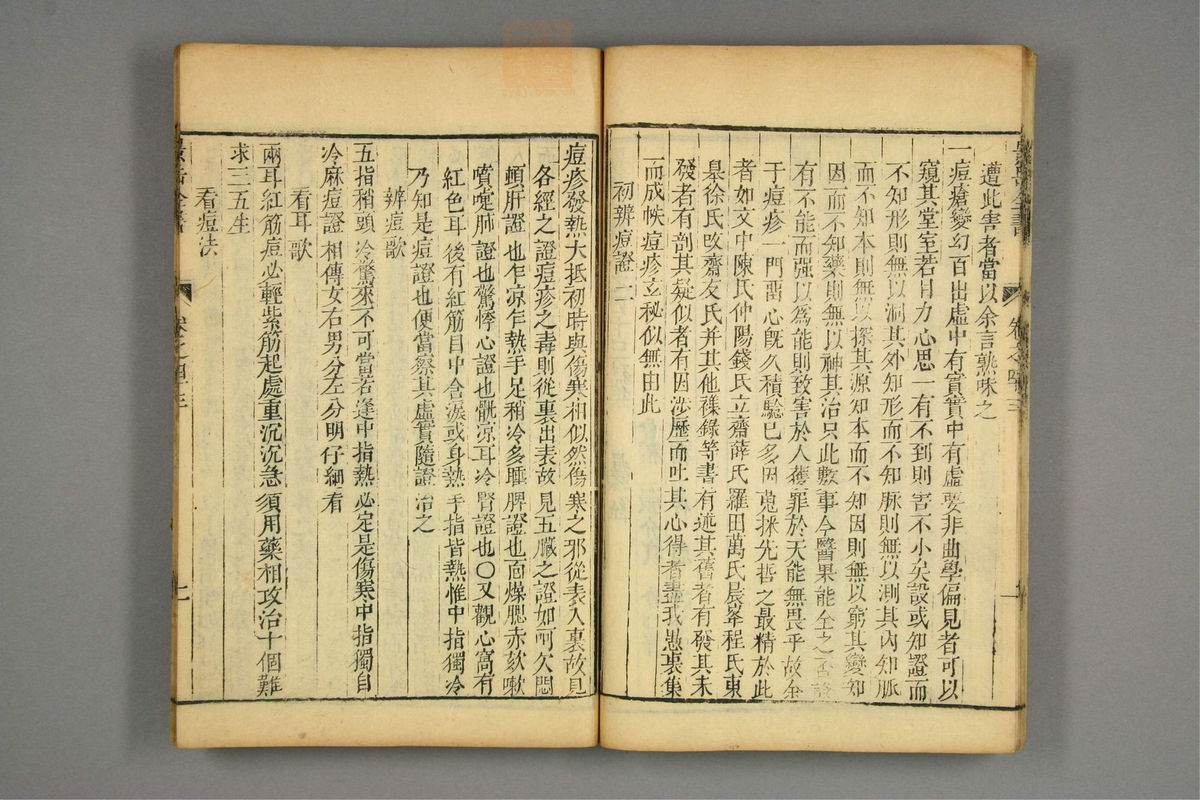 遭此害者當以余言熟味之
一痘瘡變幻百出虛中有實實中有虛要非曲學偏見者可以
窺其堂室若目力心思一有不到則害不小矣設或知證而
不知形則無以洞其外知形而不知脉則無以測其內知脉
而不知本則無以探其源知本而不知因則無以窮其變知
因而不知藥則無以神其治只此數事今醫果能全之否設
有不能而强以爲能則致害於人獲罪於天能無畏乎故余
于痘疹一門留心旣久積驗已多因蒐採先哲之最精於此
者如文中陳氏仲陽錢氏立齋薛氏羅田萬氏晨峯程氏東
臯徐氏改齋友氏并其他襍錄等書有述其舊者有發其未
發者有剖其疑似者有因涉歷而吐其心得者盡我愚衷集
而成帙痘疹立秘似無由此
初辨痘證二
痘疹發熱大抵初時與傷寒相似然傷寒之邪從表入裏故見
各經之證痘疹之毒則從裏出表故見五臟之證如呵欠悶
頓肝證也乍凉乍熱手足稍冷多睡脾證也面燥腮赤欬嗽
噴嚏肺證也驚悸心證也骩凉耳冷腎證也○又觀心窩有
紅色耳後有紅筋目中含淚或身熱手指皆熱惟中指獨冷
乃知是痘證也便當察其虛實隨證治之
辨痘歌
五指稍頭冷驚來不可當若逢中指熱必定是傷寒中指獨自
冷麻痘證相傳女右男分左分明仔細看
看耳歌
兩耳紅筋痘必輕紫筋起處重沉沉急須用藥相攻治十個難
求三五生
看痘法
卷之四十三
上